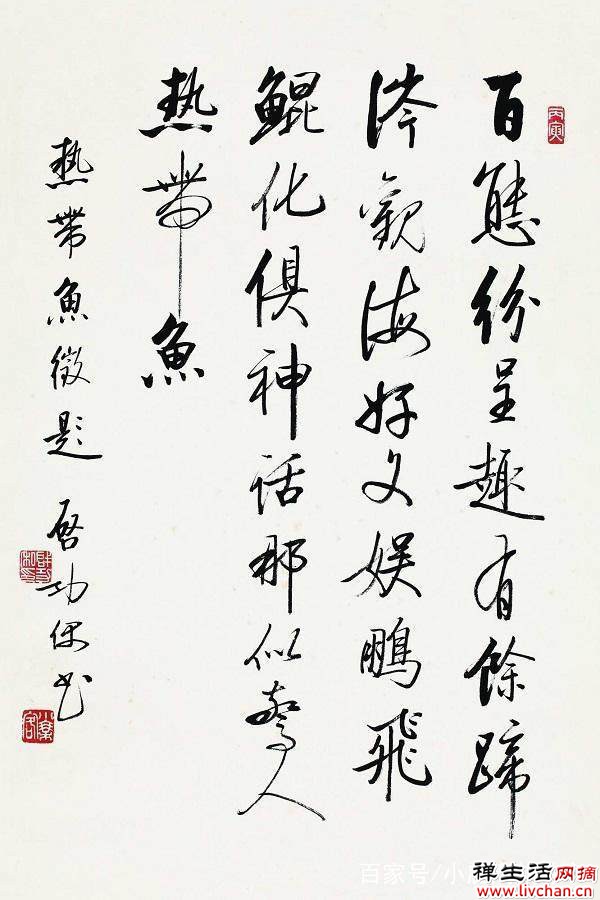 丙寅
百態紛呈趣有餘蹄
涔觀海好文娱鵬飛
鯤化俱神話那似人
熱帶魚
熱帶魚徵題 啓功偶書
百家号/小
禅生活网摘
www.livchan.cn